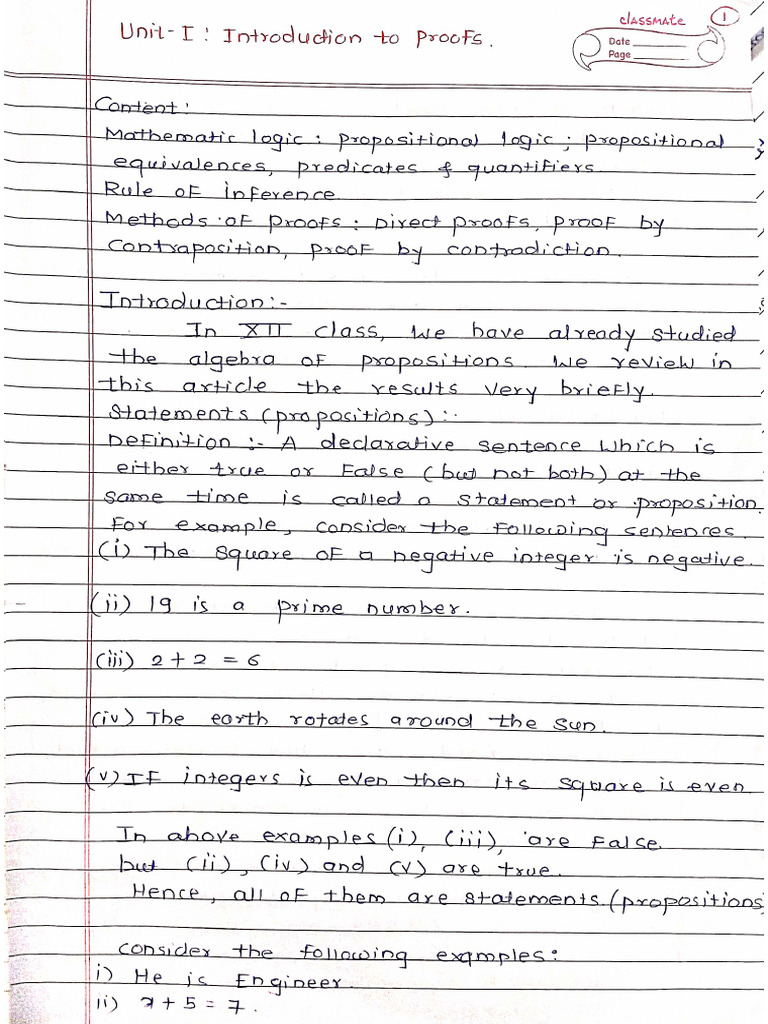 classmate
1
Unit-I : Introduction to Proofs.
Date
Page
Content :
Mathematic logic : propositional logic ; propositional
equivalences, predicates & quantifiers.
Rule of inference.
Methods of proofs : Direct proofs, proof by
contraposition, proof by contradiction.
Introduction:-
In XII class, we have already studied
the algebra of propositions. We review in
this article the results very briefly.
Statements (propositions) :-
Definition :- A declarative sentence which is
either true or false (but not both) at the
same time is called a statement or proposition.
For example, consider the following sentences.
(i) The square of a negative integer is negative.
(ii) 19 is a prime number.
(iii) 2 + 2 = 6
(iv) The earth rotates around the sun.
(v) If integers is even then its square is even
In above examples (i), (iii), are false.
but (ii), (iv) and (v) are true.
Hence, all of them are statements (propositions)
Consider the following examples:
i) He is Engineer.
ii) x + 5 = 7.